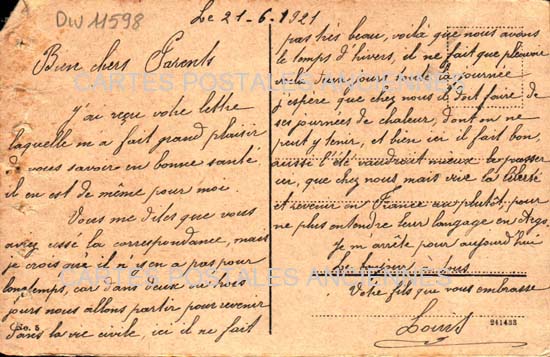 Div 11598
Le 21-6-1921
Bien chers Parents
J'ai reçu votre lettre
laquelle m'a fait grand plaisir
de vous savoir en bonne santé,
il en est de même pour moi.
Vous me dites que vous
aviez cessé la correspondance, mais
je crois qu'il n'y en a pas pour
longtemps, car dans deux ou trois
jours nous allons partir pour revenir
dans la vie civile, ici il ne fait
No. 5
pas très beau, voilà que nous avons
le temps d'hivers, il ne fait que pleuvoir
cela dur jours toute la journée
j'espère que chez nous il doit faire de
ses journées de chaleur, dont on ne
peut y tenir, et bien ici il fait bon,
aussi l'été vaudrait mieux le passer
ici, que chez nous mais vive la liberté
et revenir en France au plutôt, pour
ne plus entendre leur langage en Argo.
Je m'arrête pour aujourd'hui
Le bonjour à tous
Votre fils que vous embrasse
Louis
241433
CARTES POSTALES ANCIENNES
CARTES POSTALES ANCIENNES